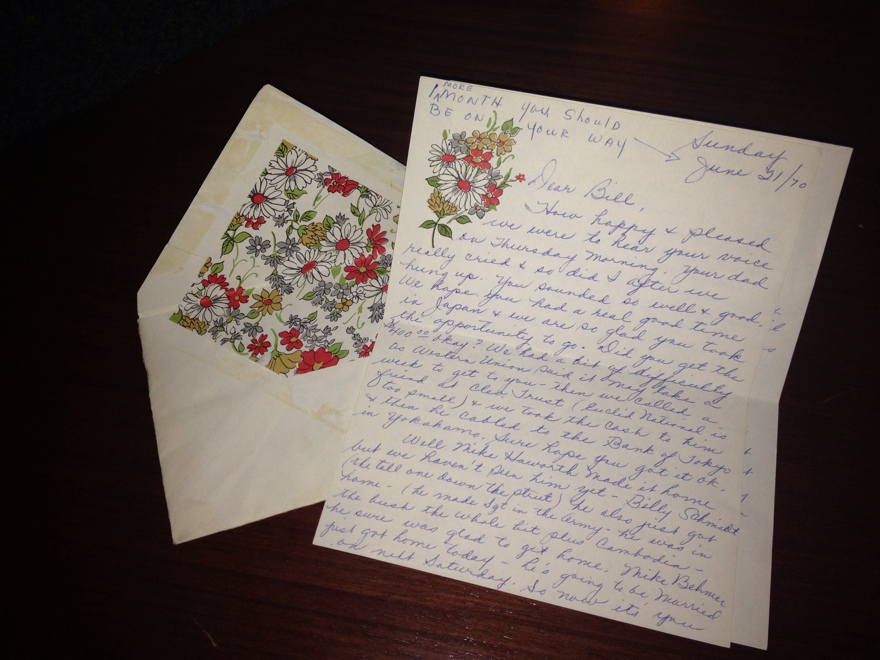 MORE
1 MONTH you should
BE ON YOUR WAY
Sunday
June 21/70
Dear Bill,
How happy & pleased
we were to hear your voice
on Thursday morning. Your dad
really cried & so did I after we
hung up. You sounded so well & good.
We hope you had a real good time
in Japan & we are so glad you took
the opportunity to go. Did you get the
$400.00 okay? We had a bit of difficulty
as Western Union said it may take a
week to get to you - then we called a
friend at Cleve Trust (Euclid National is
too small) & we took the cash to him
& then he cabled to the Bank of Tokyo
in Yokahama. Sure hope you got it ok.
Well Mike Haworth made it home
but we haven't seen him yet - Billy Schmidt
(the tall one down the street) he also just got
home - (he made Sgt in the Army - he was in
the bush the whole bit plus Cambodia -
he sure was glad to get home. Mike Behmer
just got home today - he's going to be married
on next Saturday. So now it's you